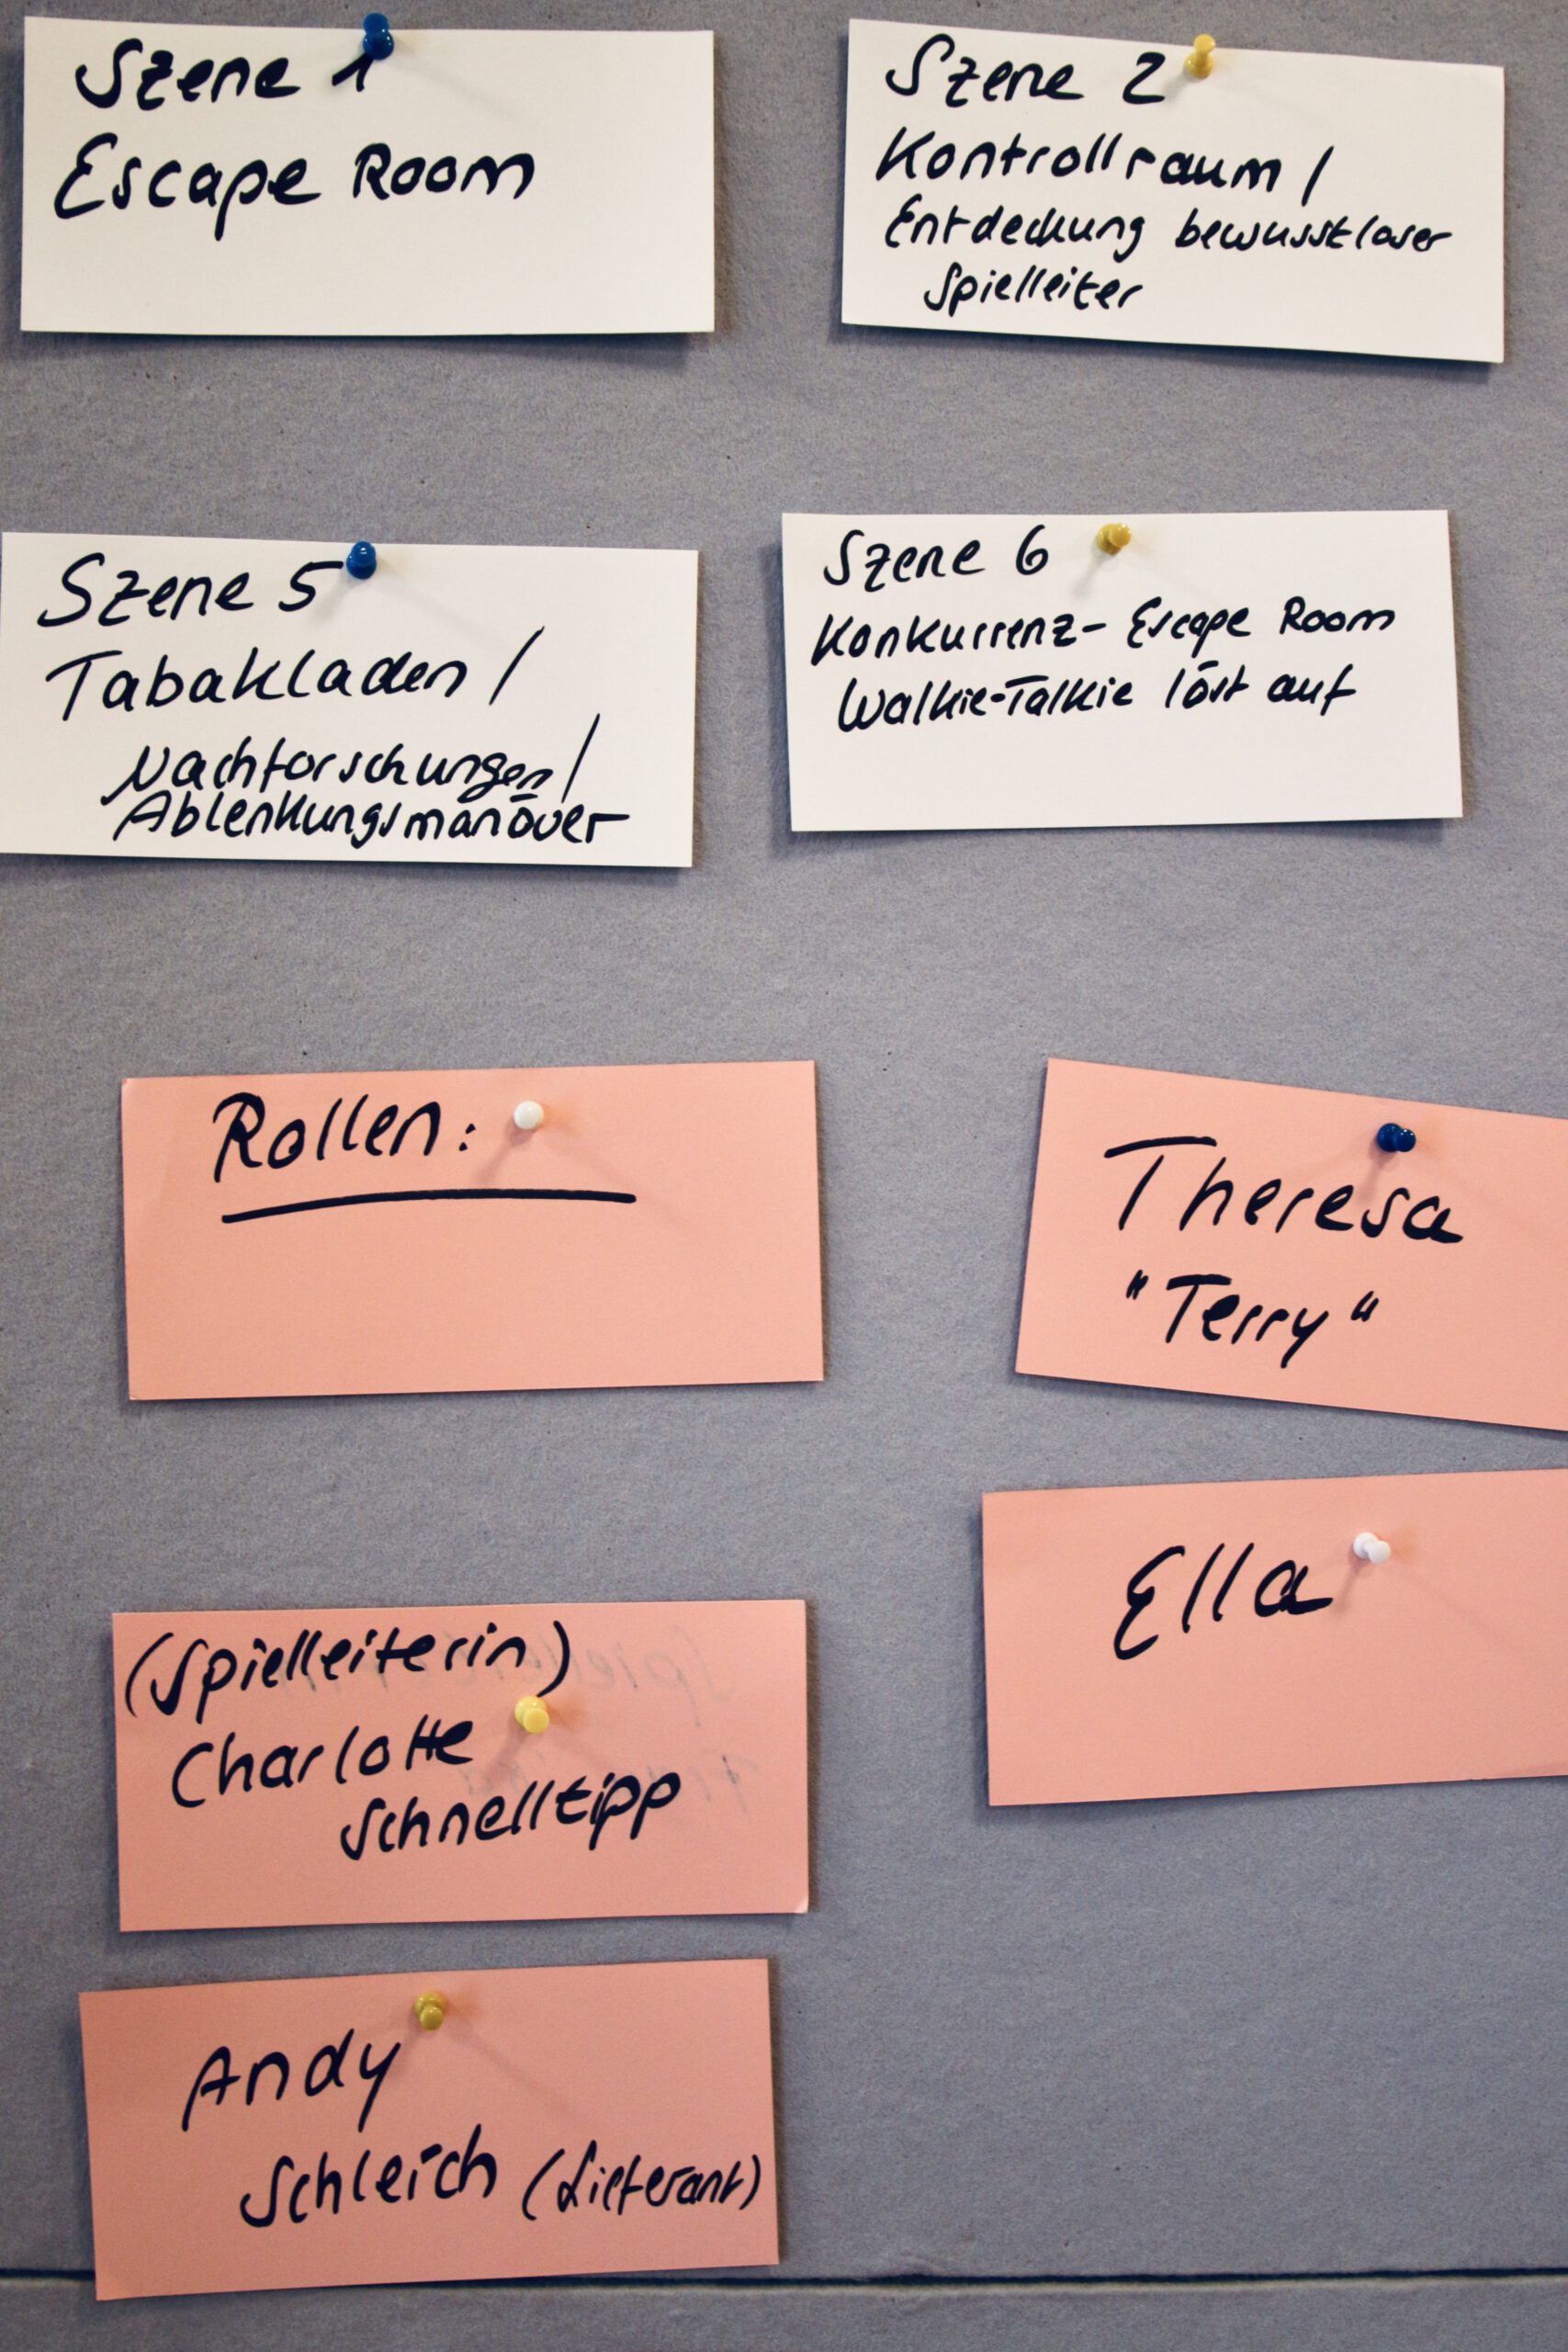 Szene 1
Escape Room
Szene 2
Kontrollraum /
Entdeckung bewusstloser
Spielleiter
Szene 5
Tabakladen /
Nachforschungen /
Ablenkungsmanöver
Szene 6
Konkurrenz- Escape Room
Walkie-Talkie löst auf
Rollen:
Theresa
"Terry"
Ella
(Spielleiterin)
Charlotte
Schnelltipp
Andy
Schleich (Lieferant)